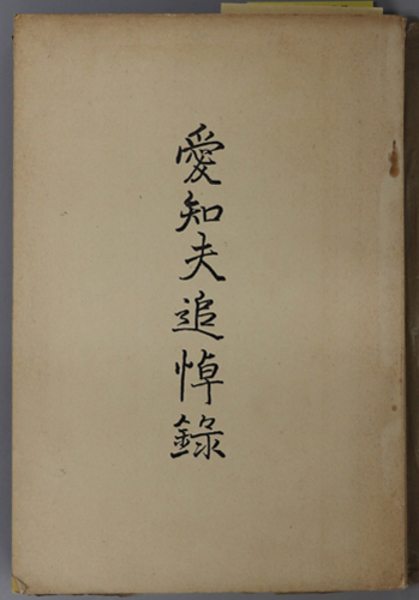 愛知夫追悼錄